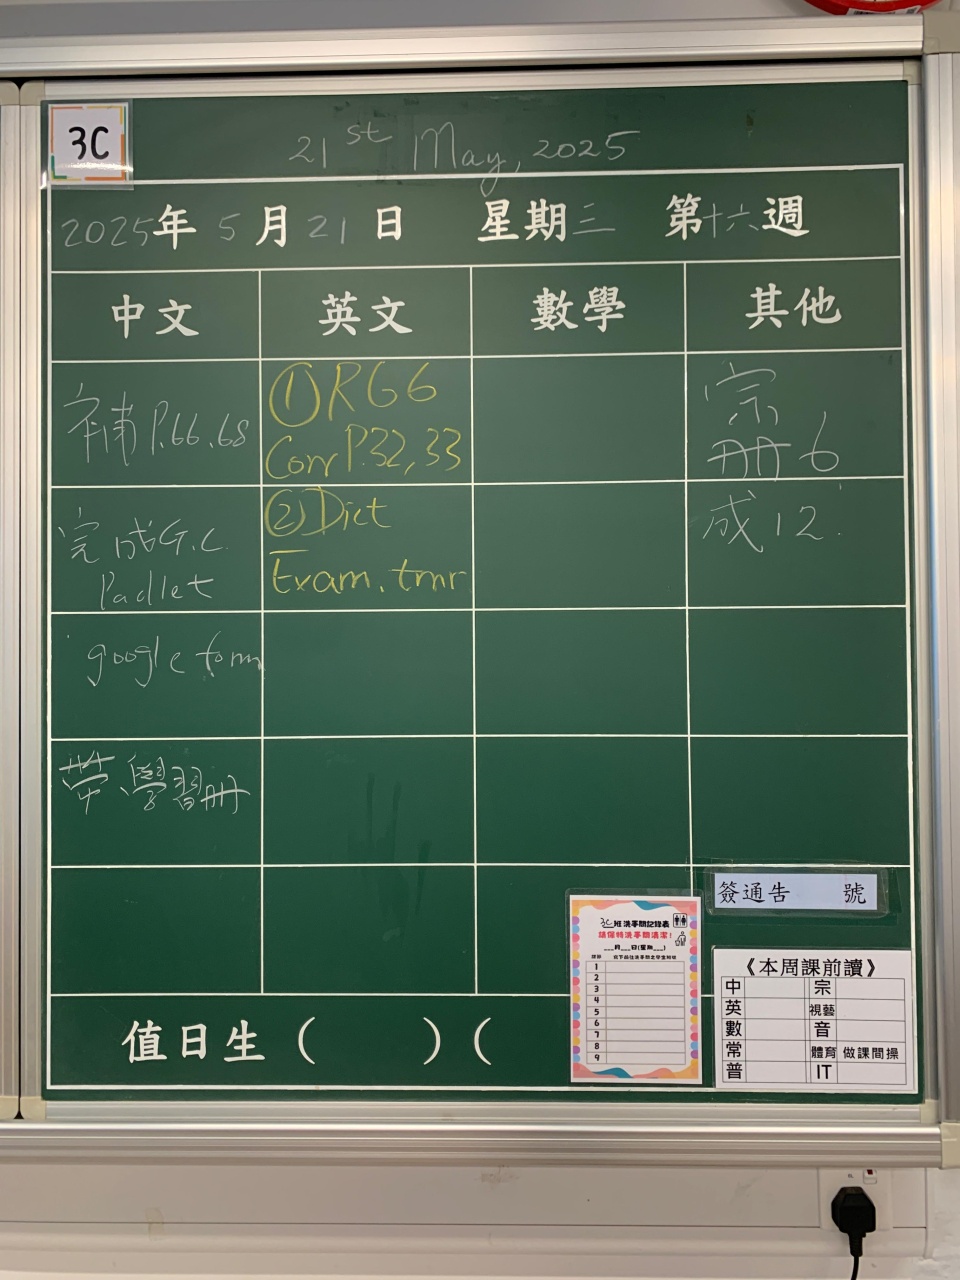 3C
21st May, 2025
2025年 5月 21日 星期三 第十六週
中文 英文 數學 其他
補 P.66.68
① RG6
Corr P.32,33
宗
冊 6
完成G.C.
Padlet
② Dict
Exam. tmr
成 12.
google form
帶學習冊
簽通告 號
3C班洗手間記錄表
請保持洗手間清潔!
___月___日(星期___)
1
2
3
4
5
6
7
8
9
《本周課前讀》
中 宗
英 視藝
數 音
常 體育 做課間操
普 IT
值日生 ( ) (